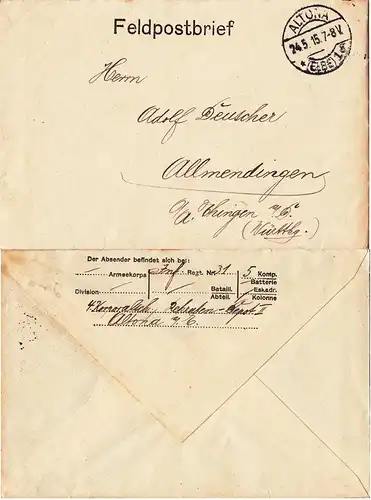 Feldpostbrief
ALTONA
24.5.15.7-8V.
* (ELBE) 1
Herrn
Adolf Deuscher
Allmendingen
O/A. Ehingen a/D.
(Württbg.)
Der Absender befindet sich bei:
Armeekorps Inf. Regt. Nr. 31 5 Komp.
Batterie
Division Bataill. Eskadr.
Abteil. Kolonne
4. Korporalsch. Rekruten-Depot II
Altona a/E.